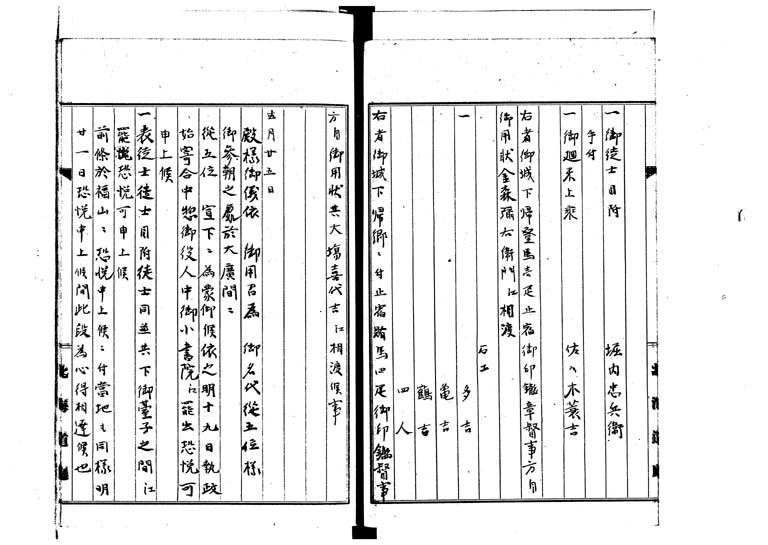 一御徒士目附　堀内忠兵衛
手付
一御廻米上乗　佐々木蓑吉
右者御城下帰登馬壱疋止宿御印鑑章督事方ゟ
御用状金森彌右衛門江相渡
石工
一　多吉
亀吉
鶴吉
四人
右者御城下帰郷ニ付止宿踏馬四疋御印鑑督事
方ゟ御用状共大塲喜代吉江相渡候事
五月廿五日
殿様御儀依　御用召為　御名代従五位様
御参朝之處於大廣間ニ
従五位　宣下ニ為蒙仰候依之明十九日執政
始寄合中惣御役人中御小書院江罷出恐悦可
申上候
一表徒士徒士目附徒士同並共下御臺子之間江
罷出恐悦可申上候
前條於福山ニ恐悦申上候ニ付當地も同様明
廿一日恐悦申上候間此段為心得相達候也
北海道廳